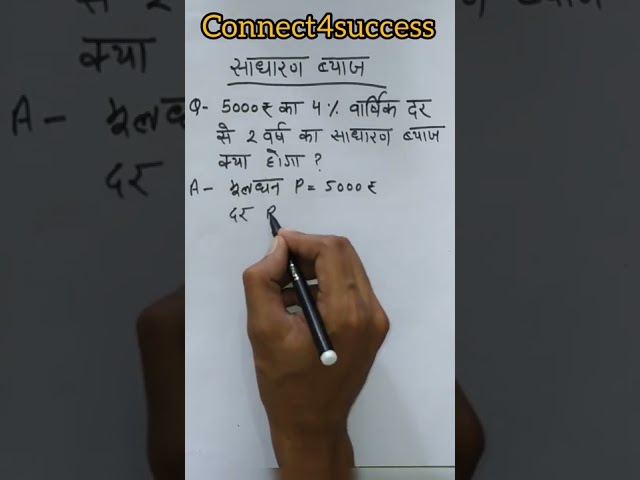 Connect4success
साधारण ब्याज
Q- 5000₹ का 4% वार्षिक दर
से 2 वर्ष का साधारण ब्याज
क्या होगा ?
A- मूलधन P = 5000₹
दर R